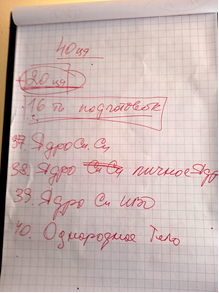 40 ц
20 ц
16 ть подготовок
37. Ядро Сп. Сп
38. Ядро личное Ядр
39. Ядро Сп ИВО
40. Однородное Тело